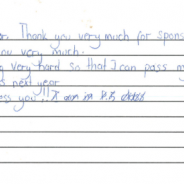 or. Thank you very much for spons
ou very much.
g very hard so that I can pass my
s next year
ess you!! I am in P.5